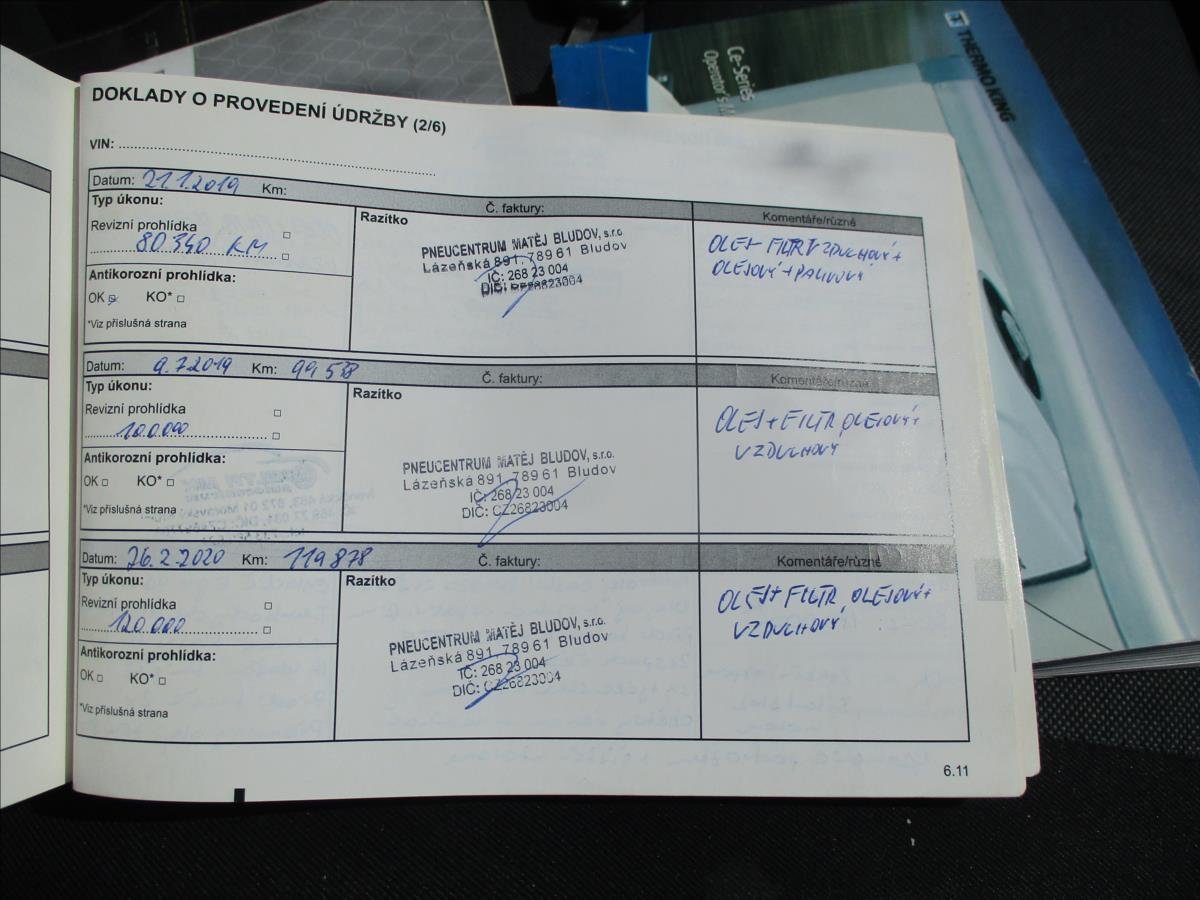 THERMO KING
Ce-Series
Operator's M
DOKLADY O PROVEDENÍ ÚDRŽBY (2/6)
VIN:
Datum: 21.1.2019 Km: Č. faktury: Komentáře/různé
Typ úkonu:
Revizní prohlídka
80.340 KM
Antikorozní prohlídka:
OK KO*
*Viz příslušná strana
Razítko
PNEUCENTRUM MATĚJ BLUDOV, s.r.o.
Lázeňská 891, 789 61 Bludov
IČ: 268 23 004
DIČ: CZ26823004
OLEJ+ FILTR VZDUCHOVÝ+
OLEJOVÝ+PALIVOVÝ
Datum: 9.7.2019 Km: 99 588 Č. faktury: Komentáře/různé
Typ úkonu:
Revizní prohlídka
100.000
Antikorozní prohlídka:
OK KO*
*Viz příslušná strana
Razítko
PNEUCENTRUM MATĚJ BLUDOV, s.r.o.
Lázeňská 891, 789 61 Bludov
IČ: 268 23 004
DIČ: CZ26823004
OLEJ+FILTR OLEJOVÝ+
VZDUCHOVÝ
Datum: 26.2.2020 Km: 119 878 Č. faktury: Komentáře/různé
Typ úkonu:
Revizní prohlídka
120.000
Antikorozní prohlídka:
OK KO*
*Viz příslušná strana
Razítko
PNEUCENTRUM MATĚJ BLUDOV, s.r.o.
Lázeňská 891, 789 61 Bludov
IČ: 268 23 004
DIČ: CZ26823004
OLEJ+FILTR OLEJOVÝ+
VZDUCHOVÝ
6.11